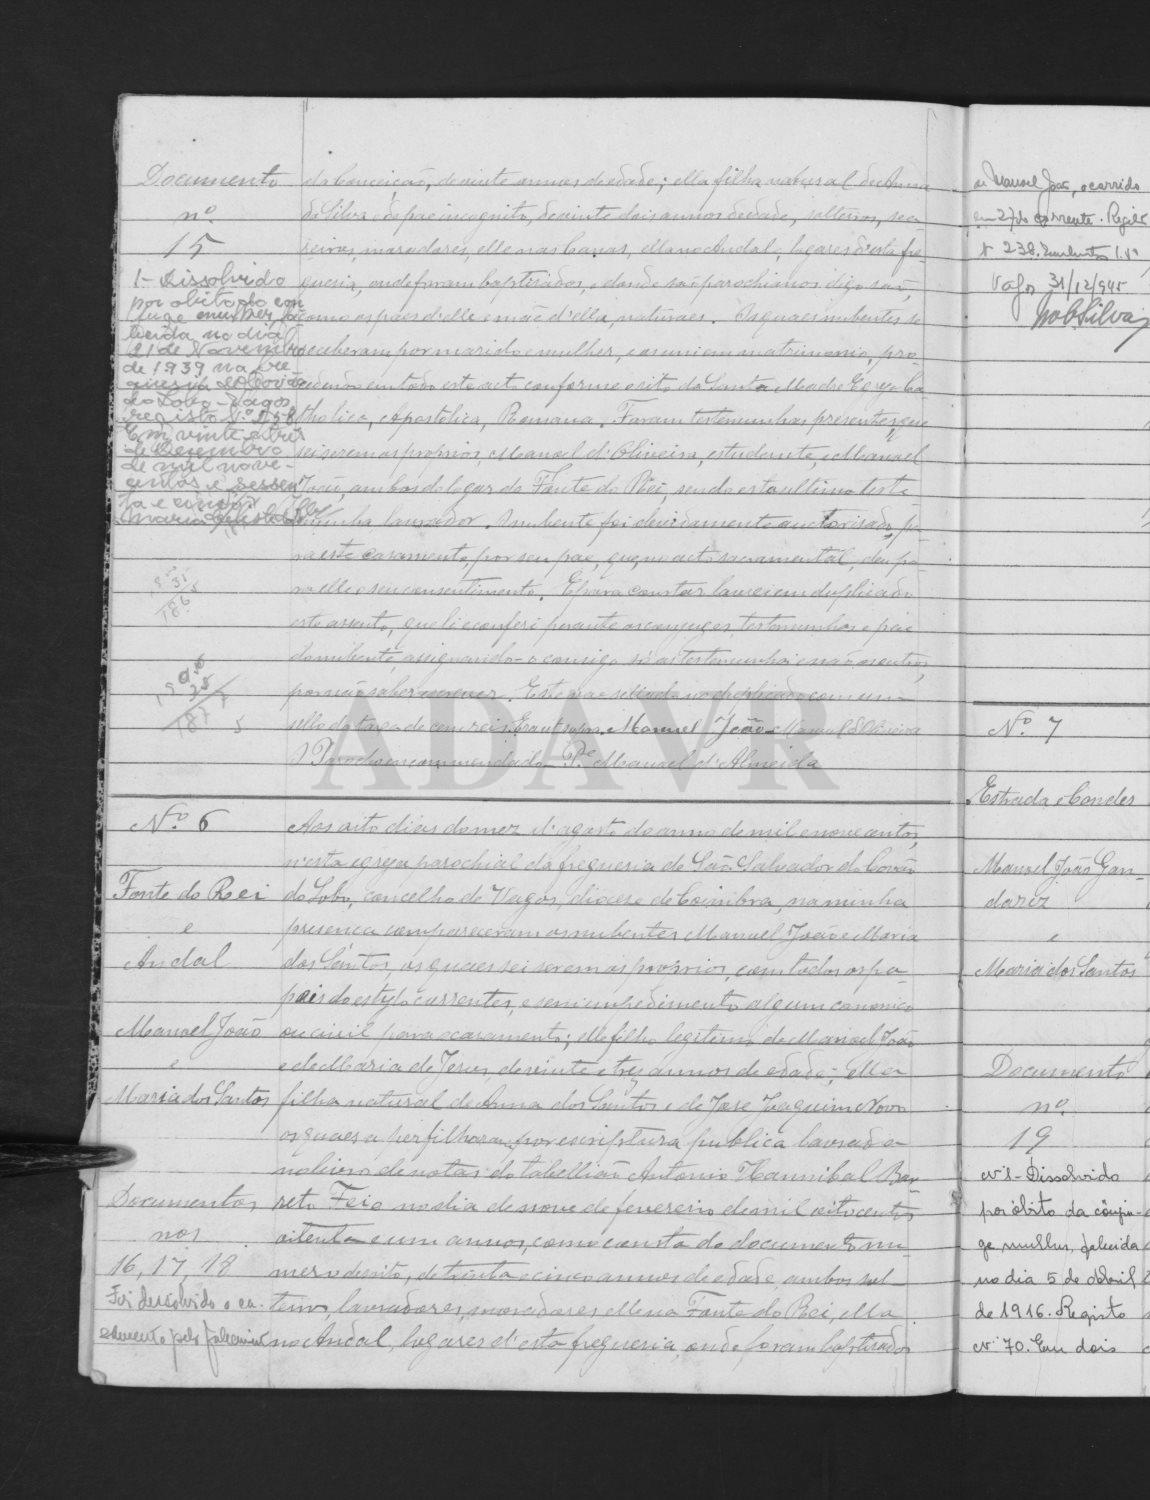 Documento
nº
15
1- Dissolvido
por obito do con
juge mulher, fa
lecida no dia
21 de Novembro
de 1939 na fre
guesia de Covão
do Lobo - Vagos
registo Nº 258
Em vinte e três
de Dezembro
de mil nove-
centos e sessen
ta e cinco
da Conceição, de vinte annos de edade; ella filha natural de Anna
da Silva e de pae incognito, de vinte dois annos de edade, solteiros, sea
reiros, moradores, elle nas Canas, ella no Andal, logares d'esta fre
guesia, onde foram baptisados, e donde são parochianos digo são,
como os paes d'elle e mãe d'ella, naturaes. Os quaes nubentes se
receberam por marido e mulher, e os uni em matrimonio, pro
cedendo em todo este acto conforme o rito da Santa Madre Egreja Ca
tholica, Apostolica, Romana. Foram testemunhas presentes, que
sei serem os proprios, Manoel d'Oliveira, estudante, e Manoel
João, ambos do logar da Fonte do Rei, sendo esta ultima teste
munha lavrador. O nubente foi devidamente auctorisado, pa
ra este casamento, por seu pae, que, no acto sacramental, deu pa
ra elle o seu consentimento. E para constar lavrei em duplicado
este assento, que li e conferi perante os conjuges, testemunhas e pae
do nubente, assignando-o comigo só as testemunhas e não os outros,
por não saber escrever. Este vae sellado no duplicado com um
sello da taxa de cem reis. Era ut supra. Manuel João Manuel d'Oliveira
O Parocho encommendado Pe. Manoel d'Almeida
ADAVR
Nº 6
Fonte do Rei
e
Andal
Manoel João
e
Maria dos Santos
Documentos
nos
16, 17, 18
Foi dessolvido o ca-
samento pelo falecimen
Aos oito dias do mez d'agosto do anno de mil e novecentos,
n'esta egreja parochial da freguesia de São Salvador do Covão
do Lobo, concelho de Vagos, diocese de Coimbra, na minha
presença compareceram os nubentes Manuel João e Maria
dos Santos, os quaes sei serem os proprios, com todos os pa
peis do estylo correntes, e sem impedimento algum canonico
ou civil para o casamento; elle filho legitimo de Manoel João
e de Maria de Jesus, de vinte e tres annos de edade; ella
filha natural de Anna dos Santos e de Jose Joaquim Novo
os quaes a perfilharam por escriptura publica lavrada
no livro de notas do tabellião Antonio Hannibal Bar
reto Feio no dia de nove de fevereiro de mil oitocentos
oitenta e um annos, como consta do documento nu-
mero desoito, de trinta e cinco annos de edade ambos sol-
teiros lavradores, moradores elle na Fonte do Rei, ella
no Andal, logares d'esta freguesia, onde foram baptisados
de Manoel João, ocorrido
em 27 do corrente. Registo
Nº 238.
Vagos 31/12/945
Silva
Nº 7
Estrada e Condes
Manoel João Gan-
dariz
e
Maria dos Santos
Documento
nº
19
Nº 1- Dissolvido
por óbito da cônju-
ge mulher, falecida
no dia 5 de Abril
de 1916. Registo
Nº 70. Em dois